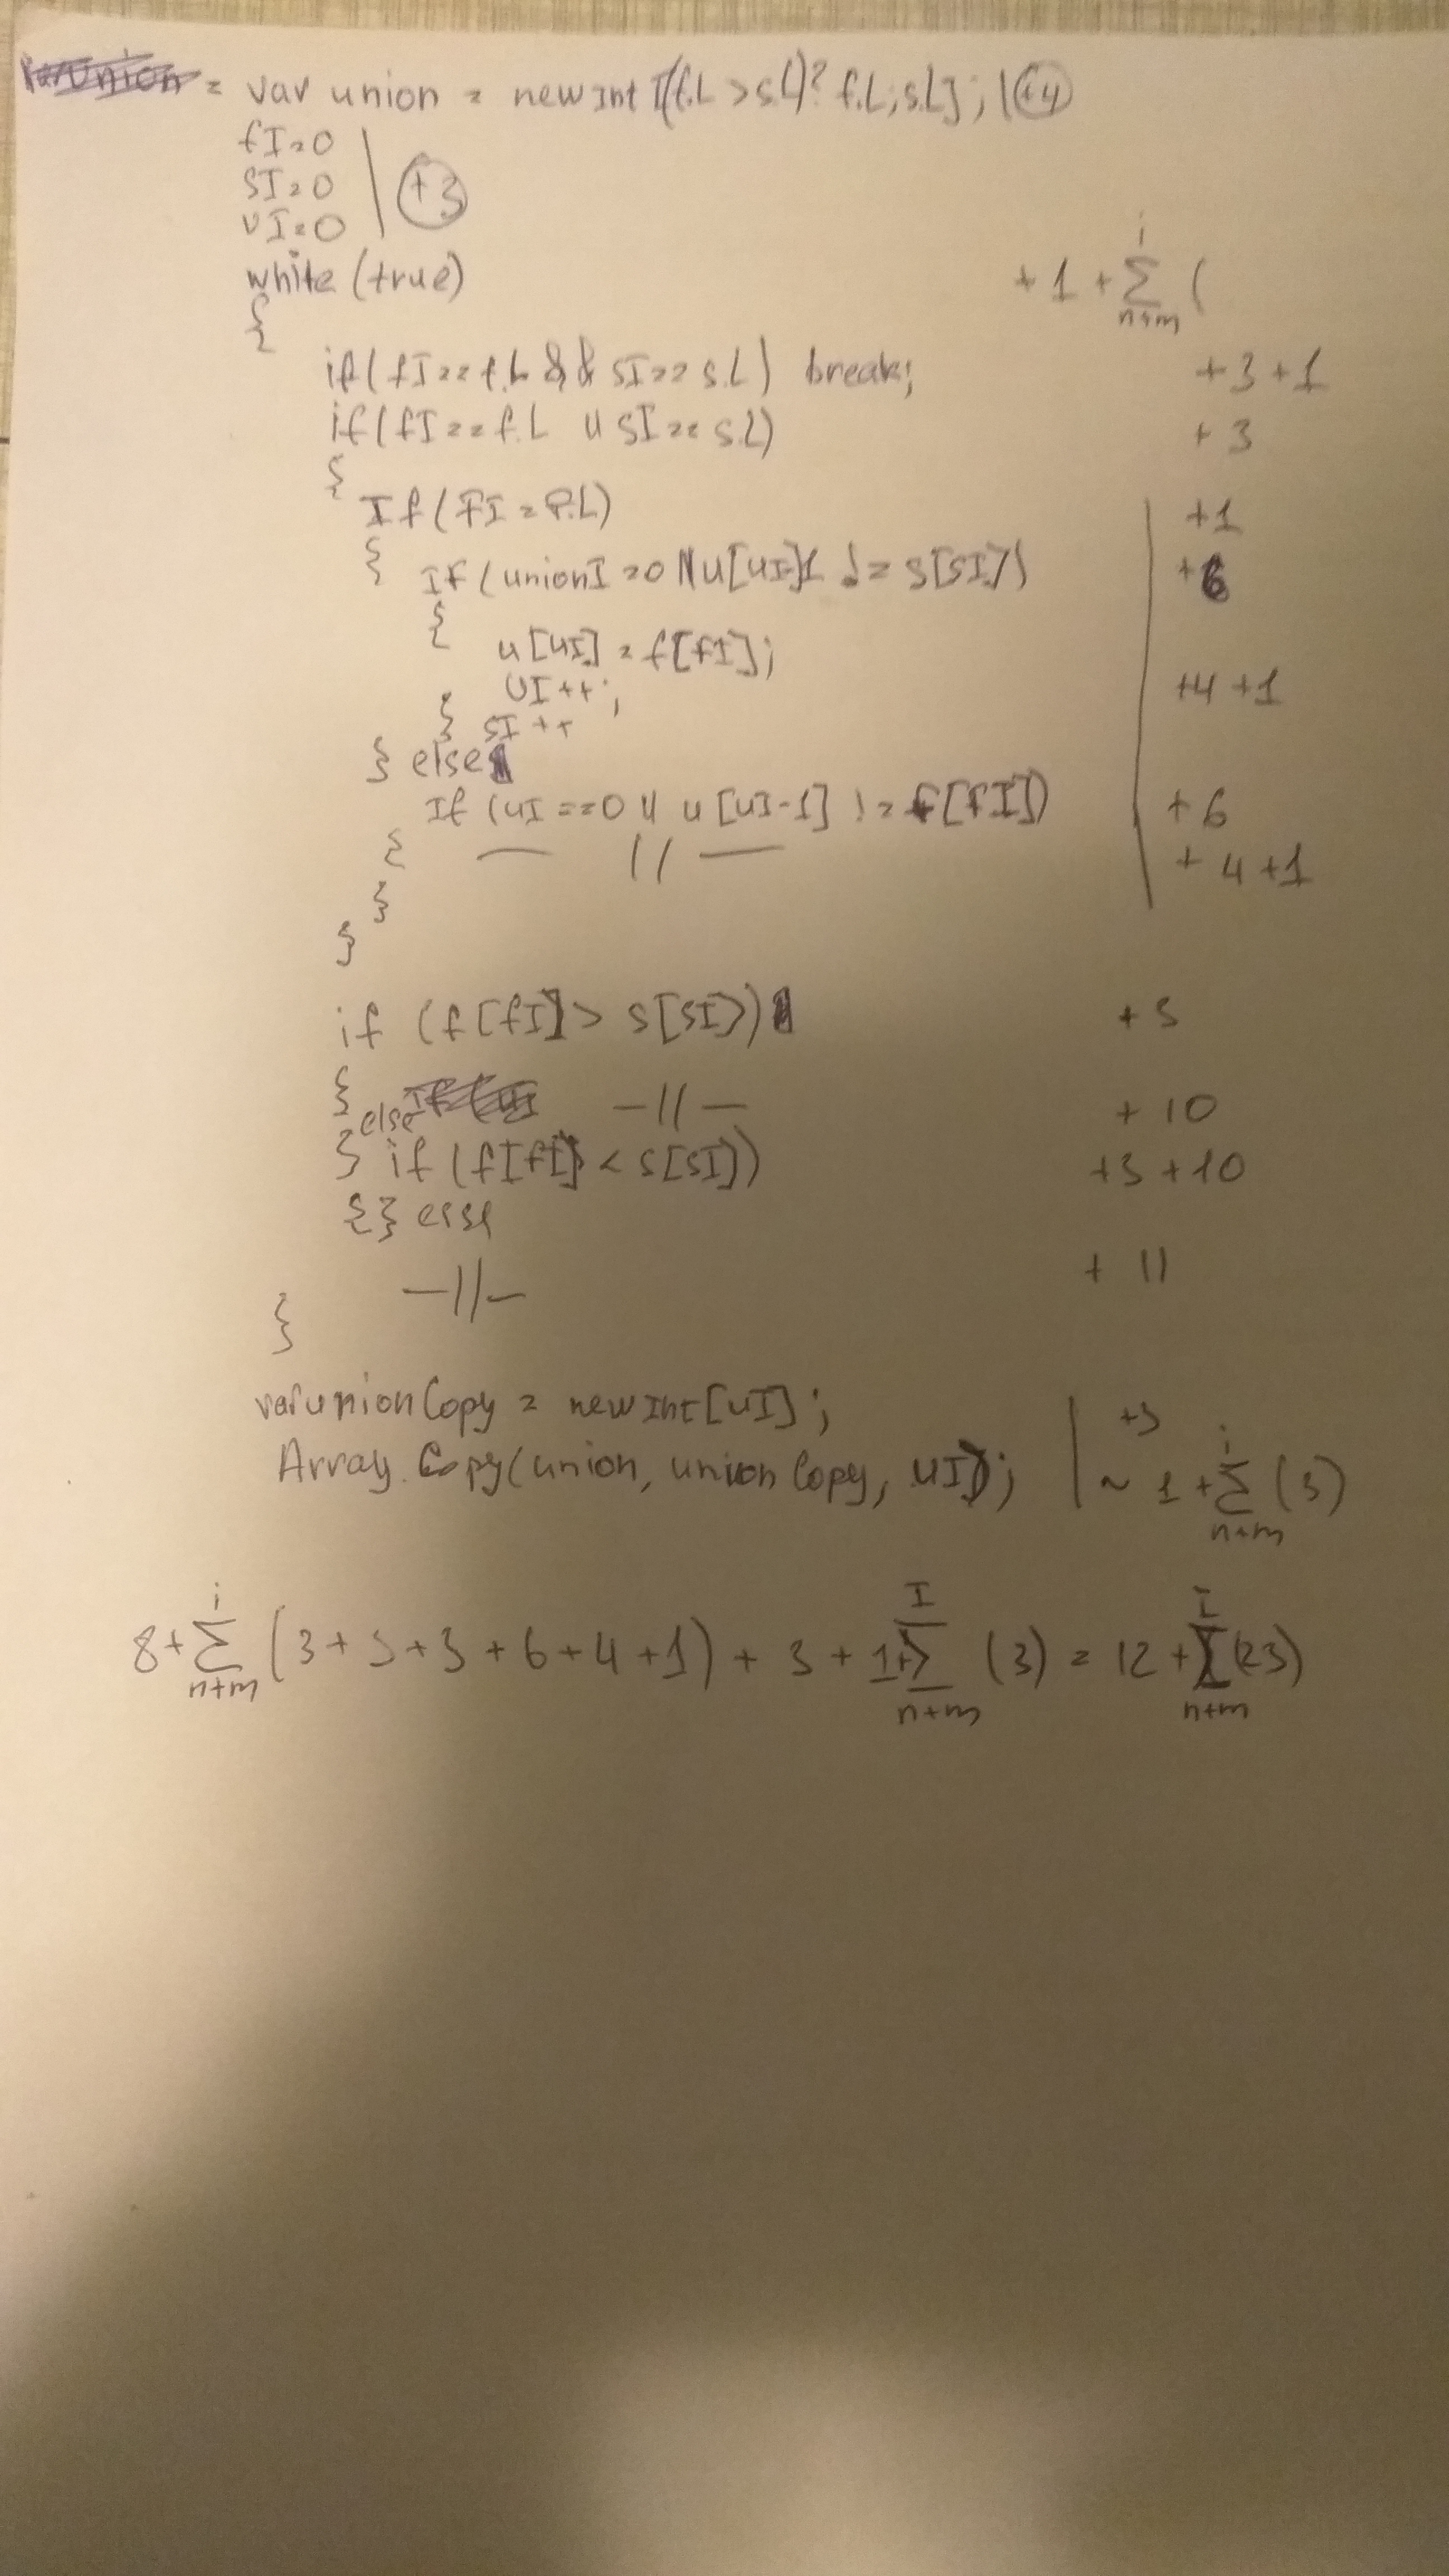 = var union = new int [(f.L > s.L)? f.L; s.L]; | +4
fI=0
sI=0
UI=0 | +3
while (true) + 1 + i ∑ n+m (
{
if( fI == f.L && sI == s.L) break; +3+1
if( fI == f.L || sI == s.L) + 3
{
If( FI = f.L) +1
{ If ( unionI = 0 || u[uI-]1 != s[sI]) +6
{ u[uI] = f[fI];
UI++; +4 +1
} sI++
} else
If (uI ==0 || u [uI-1] != f[fI]) + 6
{ — // — + 4 +1
}
}
if (f[fI] > s[sI]) + 5
{ — // — + 10
else
} if (f[fI] < s[sI]) +3 +10
{} else
— // — + 11
}
var unionCopy = new Int[uI]; | +3
Array.Copy(union, unionCopy, uI); | ~ 1 + i ∑ n+m (3)
8 + i ∑ n+m (3+3+3+6+4+1) + 3 + 1 + I ∑ n+m (3) = 12 + I ∑ n+m (23)